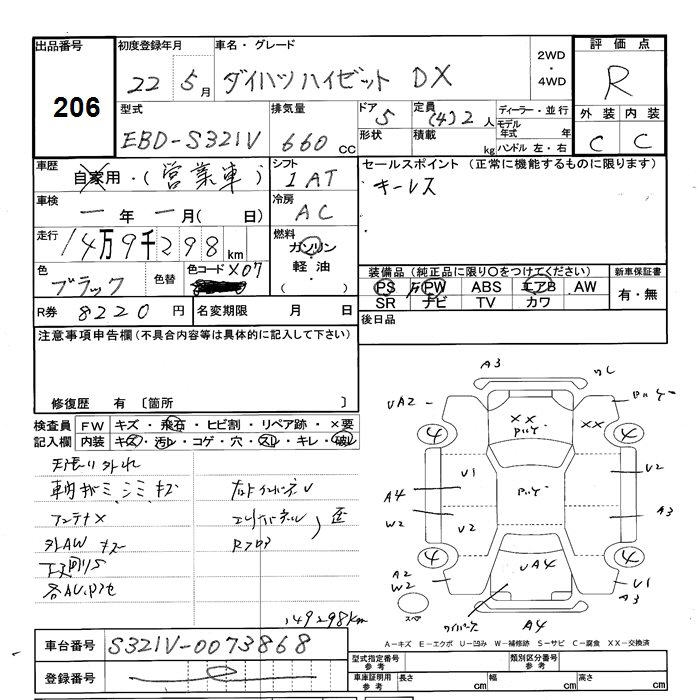 出品番号
206
初度登録年月
22 5月
車名・グレード
ダイハツ ハイゼット DX
2WD
・
4WD
評価点
R
外装 内装
C C
型式
EBD-S321V
排気量
660 cc
ドア
5
形状
定員
(4)2人
積載
kg
ディーラー・並行
モデル年式 年
ハンドル 左・右
車歴
自家用・(営業車)
シフト
1AT
車検
一年一月( 日)
冷房
AC
走行
14万9千298km
燃料
ガソリン
・
軽油
・
( )
色
ブラック
色替
色コード X07
R券 8220円
名変期限 月 日
セールスポイント (正常に機能するものに限ります)
キーレス
装備品 (純正品に限り○をつけてください)
PS PW ABS エアB AW
SR ナビ TV カワ
新車保証書
有・無
後日品
注意事項申告欄 (不具合内容等は具体的に記入して下さい)
修復歴 有 〔箇所
検査員記入欄
FW キズ・飛石・ヒビ割・リペア跡・×要
内装 キズ・汚レ・コゲ・穴・スレ・キレ・破レ
天張り外れ
車内キズミ、シミ、キズ
アンテナX
外AW キズ
下廻りS
各AU,Pアセ
Rフロア
歪
149298km
A3
ワレ
UA2
XX
XX
4
4
U1
U2
A4
A3
W2
U2
4
4
A2
W2
UA4
U1
A3
スペア
A4
A-キズ E-エクボ U-凹み W-補修跡 S-サビ C-腐食 XX-交換済
車台番号 S321V-0073868
登録番号
型式指定番号 参考
類別区分番号 参考
車庫証明用 参考
長さ cm 幅 cm 高さ cm